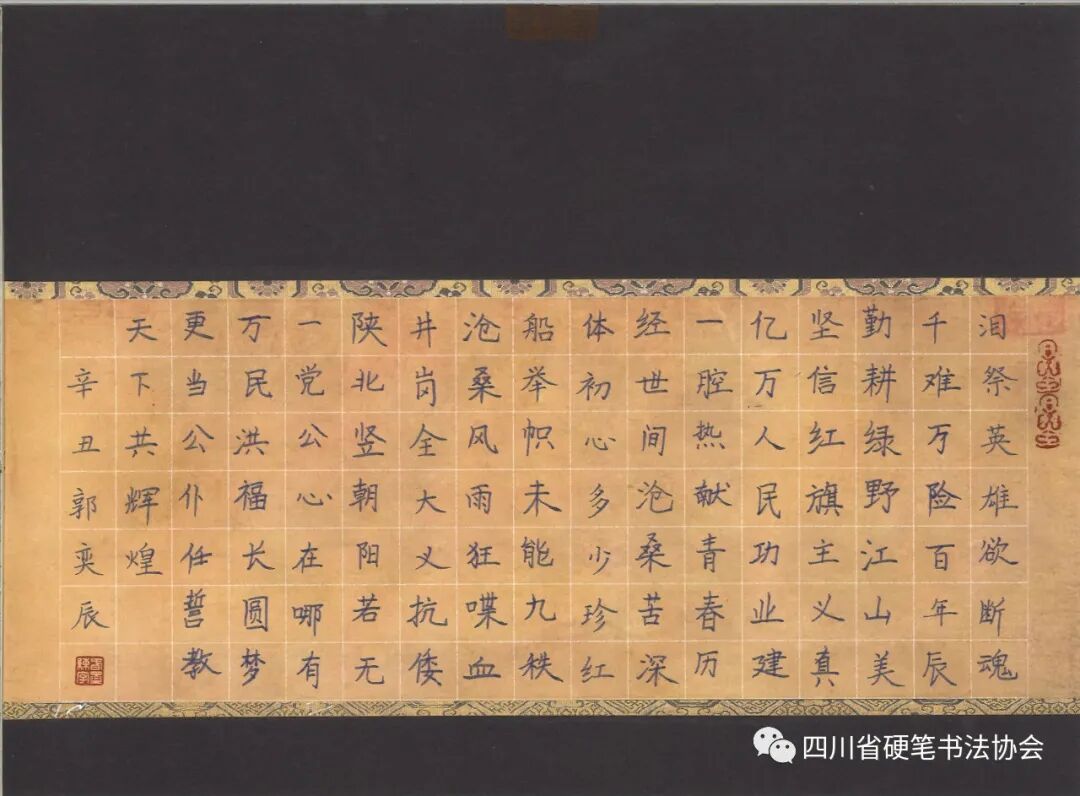 泪祭英雄欲断魂
千难万险百年辰
勤耕绿野江山美
坚信红旗主义真
亿万人民功业建
一腔热献青春历
经世间沧桑苦深
体初心多少珍红
船举帜未能九秩
沧桑风雨狂喋血
井岗全大义抗倭
陕北竖朝阳若无
一党公心在哪有
万民洪福长圆梦
更当公仆任誓教
天下共辉煌
辛丑郭奕辰
四川省硬笔书法协会